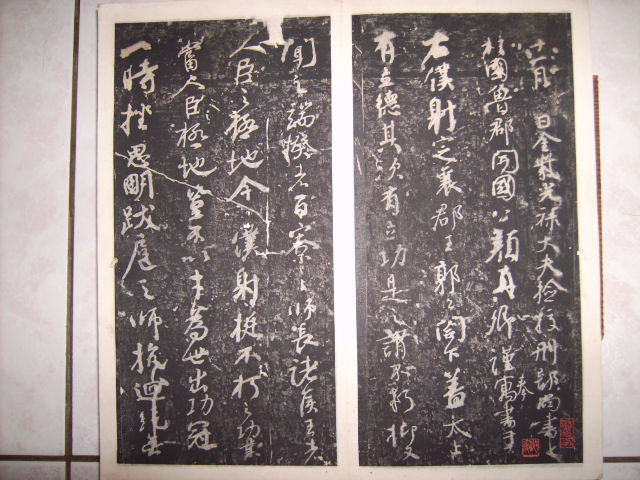 十一月 日金紫光祿大夫檢校刑部尚書上
柱國魯郡開國公顏真卿謹寓奉書于
右僕射定襄郡王郭公閣下蓋太上
有立德其次有立功是之謂不朽抑又
聞之端揆者百寮之師長諸侯王者
人臣之極地今僕射挺不朽之功業
當人臣極地豈不以才為世出功冠
一時挫思明跋扈之師抗迴紇無